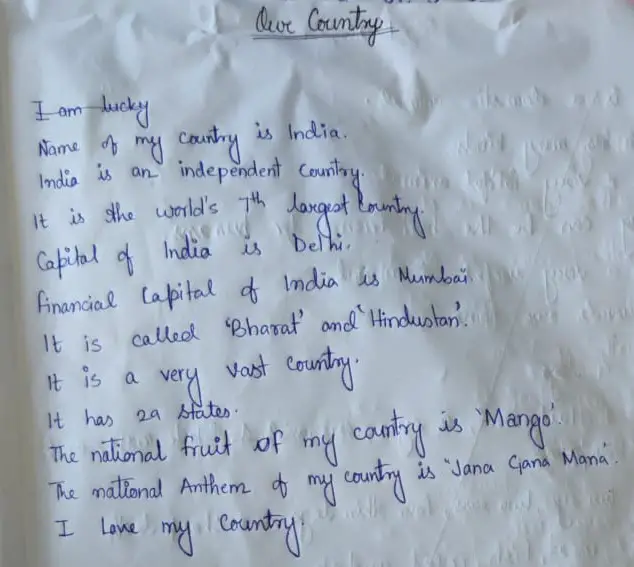 Our Country
I am lucky
Name of my country is India.
India is an independent Country.
It is the world's 7th largest Country.
Capital of India is Delhi.
financial Capital of India is Mumbai.
It is called 'Bharat' and 'Hindustan'.
It is a very vast country.
It has 29 states.
The national fruit of my country is 'Mango'.
The national Anthem of my country is "Jana Gana Mana'.
I Love my Country.